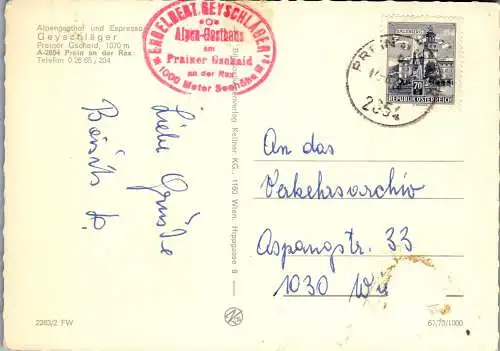 Alpengasthof und Espresso
Geyschläger
Preiner Gscheid, 1070 m
A-2654 Prein an der Rax
Telefon 0 26 65 / 204
ENGELBERT GEYSCHLÄGER
Alpen-Gasthaus
am
Prainer Gschaid
an der Rax
1000 Meter Seehöhe
PREIN
2654
SALZBURG
70
REPUBLIK ÖSTERREICH
Liebe Grüße
Kellner KG., 1160 Wien, Hippgasse 8
An das
Verkehrsarchiv
Aspangstr. 33
1030 Wi
2263/2 FW
67/75/1000